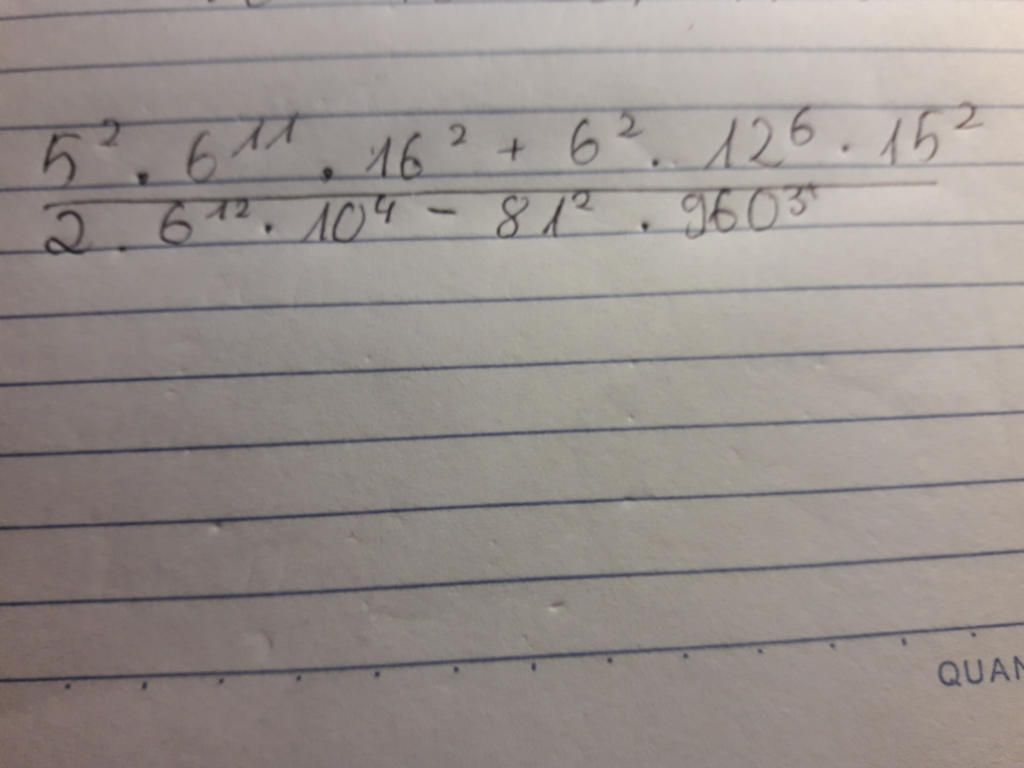 5² . 6¹¹ . 16² + 6² . 12⁶ . 15²
2 . 6¹² . 10⁴ - 81² . 960³
QUAN